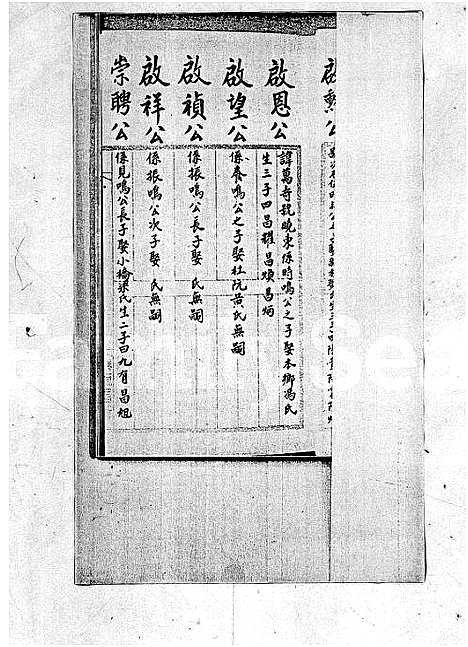 啟勳公
啟恩公
諱萬奇號曉東係時鳴公之子娶本鄉馮氏
生三子曰昌耀昌頌昌炳
啟望公
係養鳴公之子娶杜阮黃氏無嗣
啟禎公
係振鳴公長子娶 氏無嗣
啟祥公
係振鳴公次子娶 氏無嗣
崇聘公
係見鳴公長子娶小橋梁氏生二子曰九有昌俎